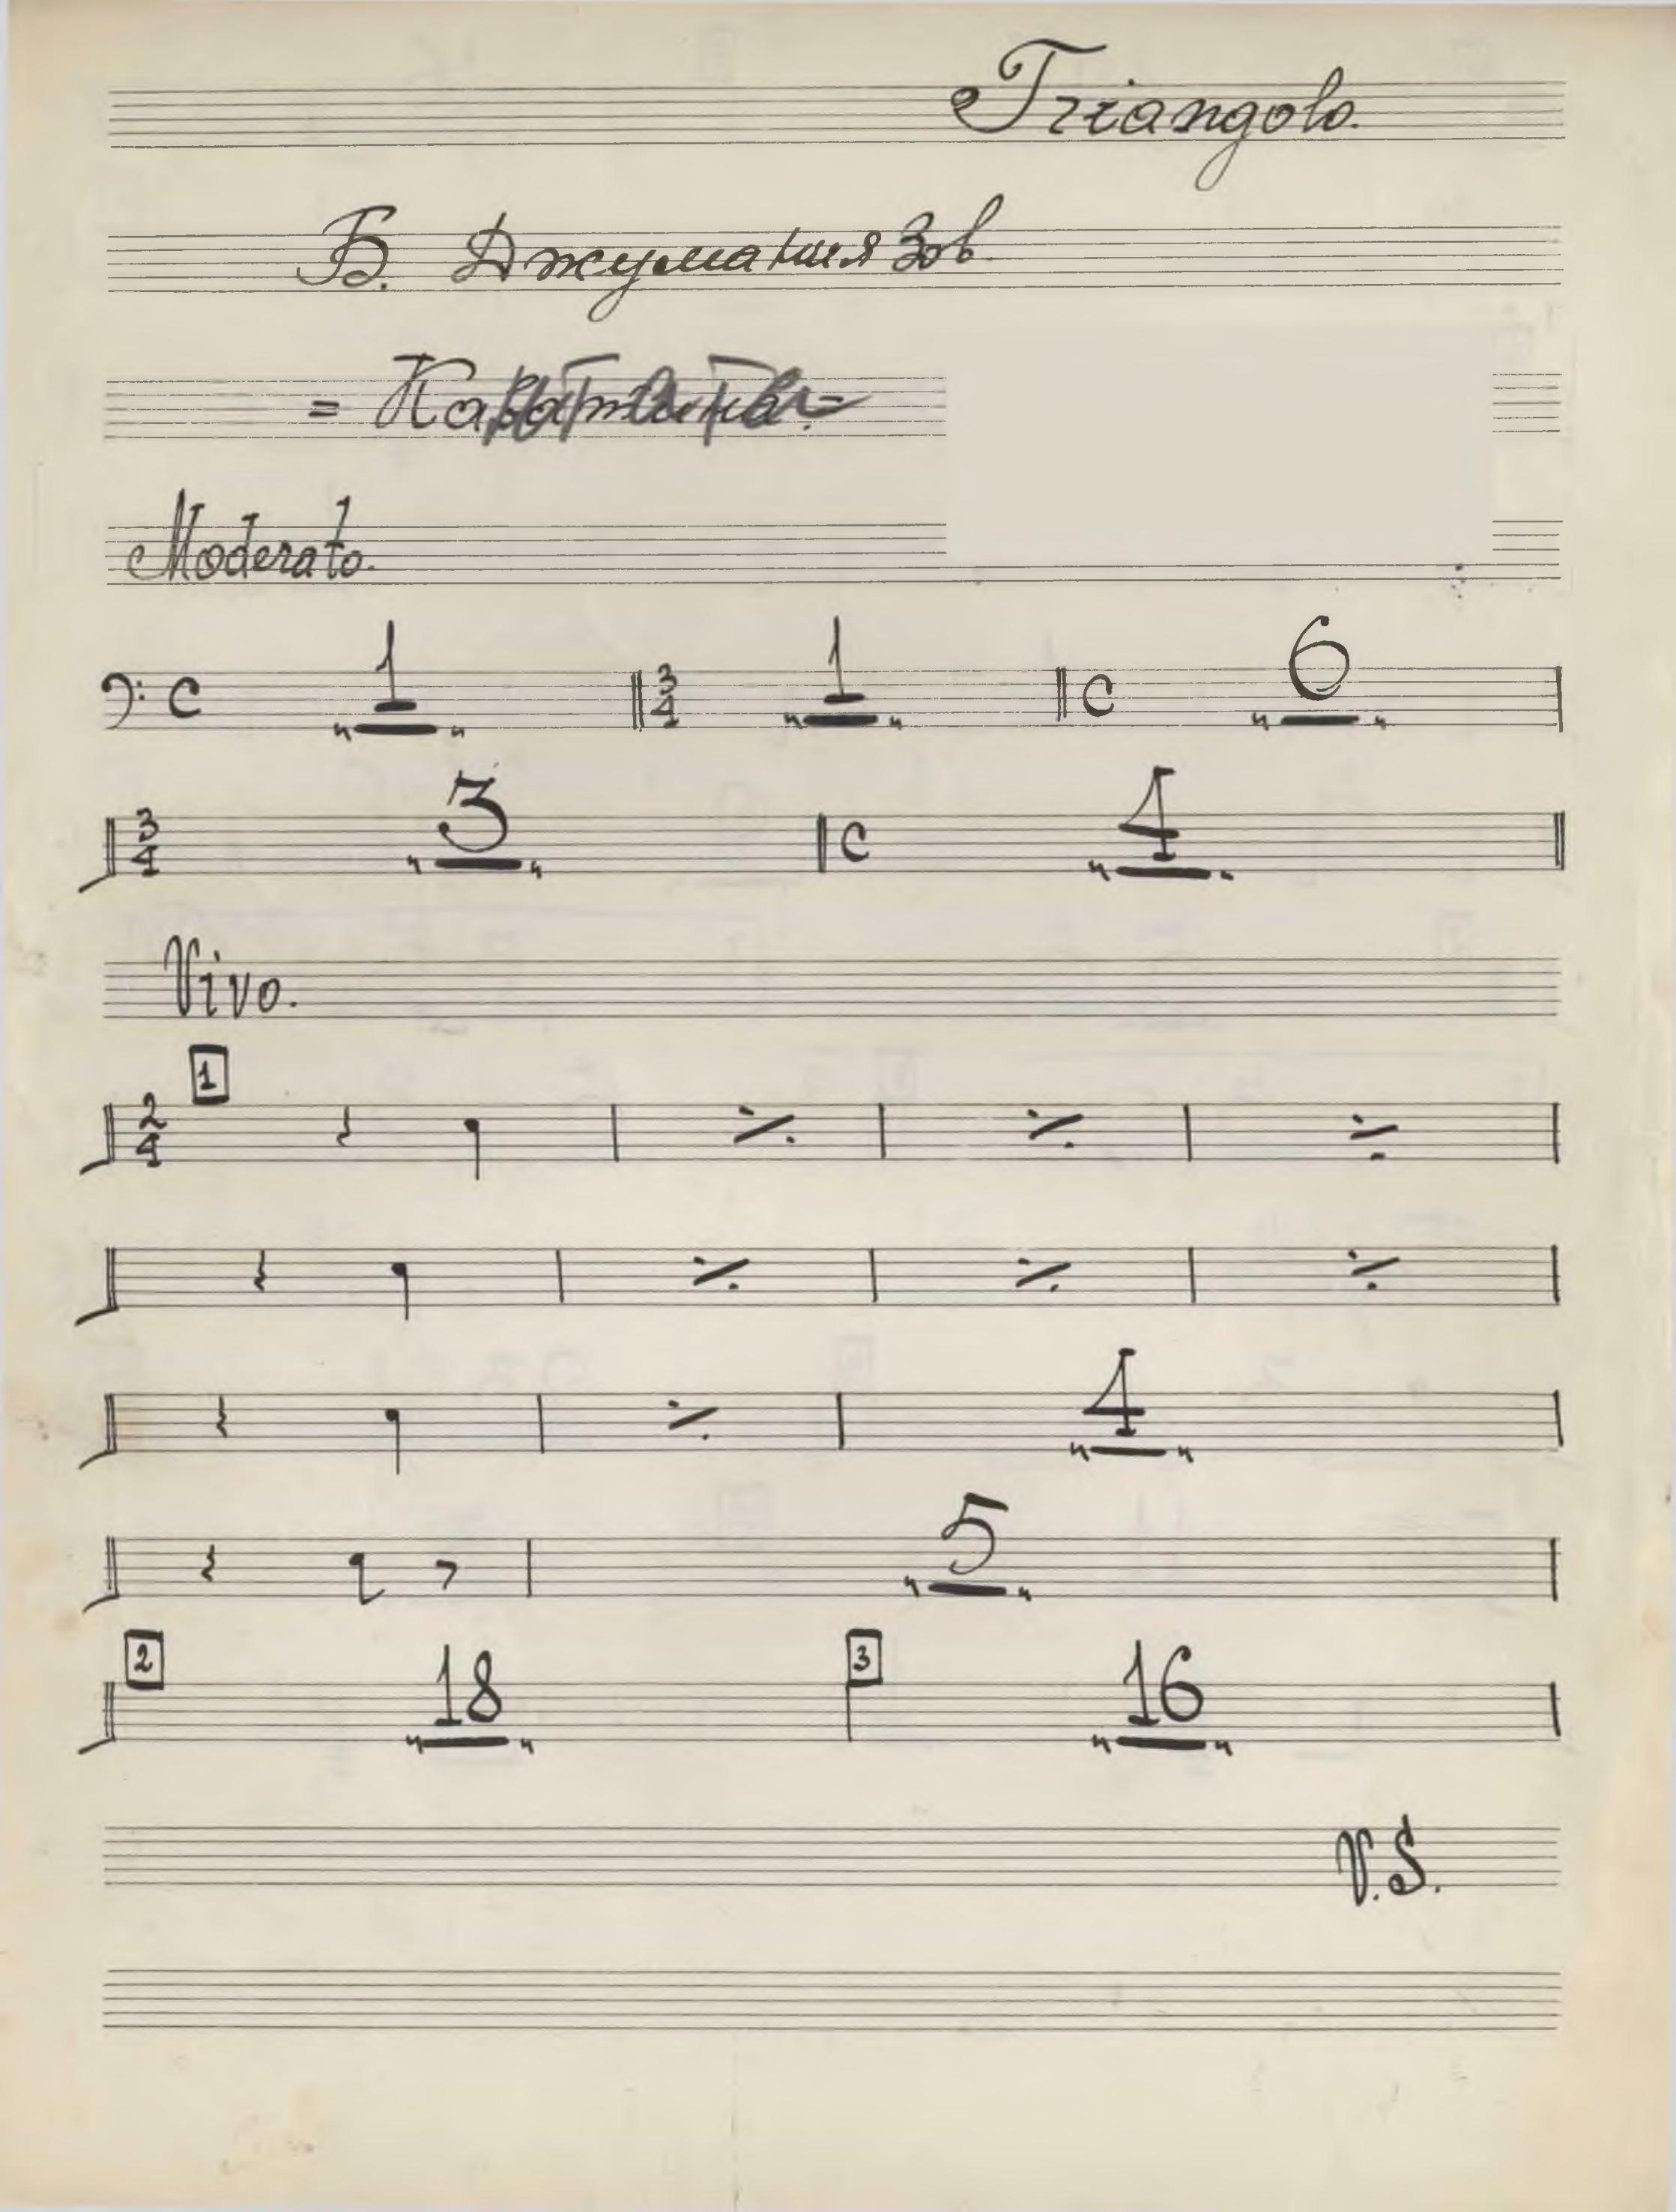 Triangolo.
Б. Джуманиязов.
Moderato.
C 1 3/4 1 C 6
3/4 3 C 4
Vivo.
1
2/4
4
5
2 18 3 16
V.S.